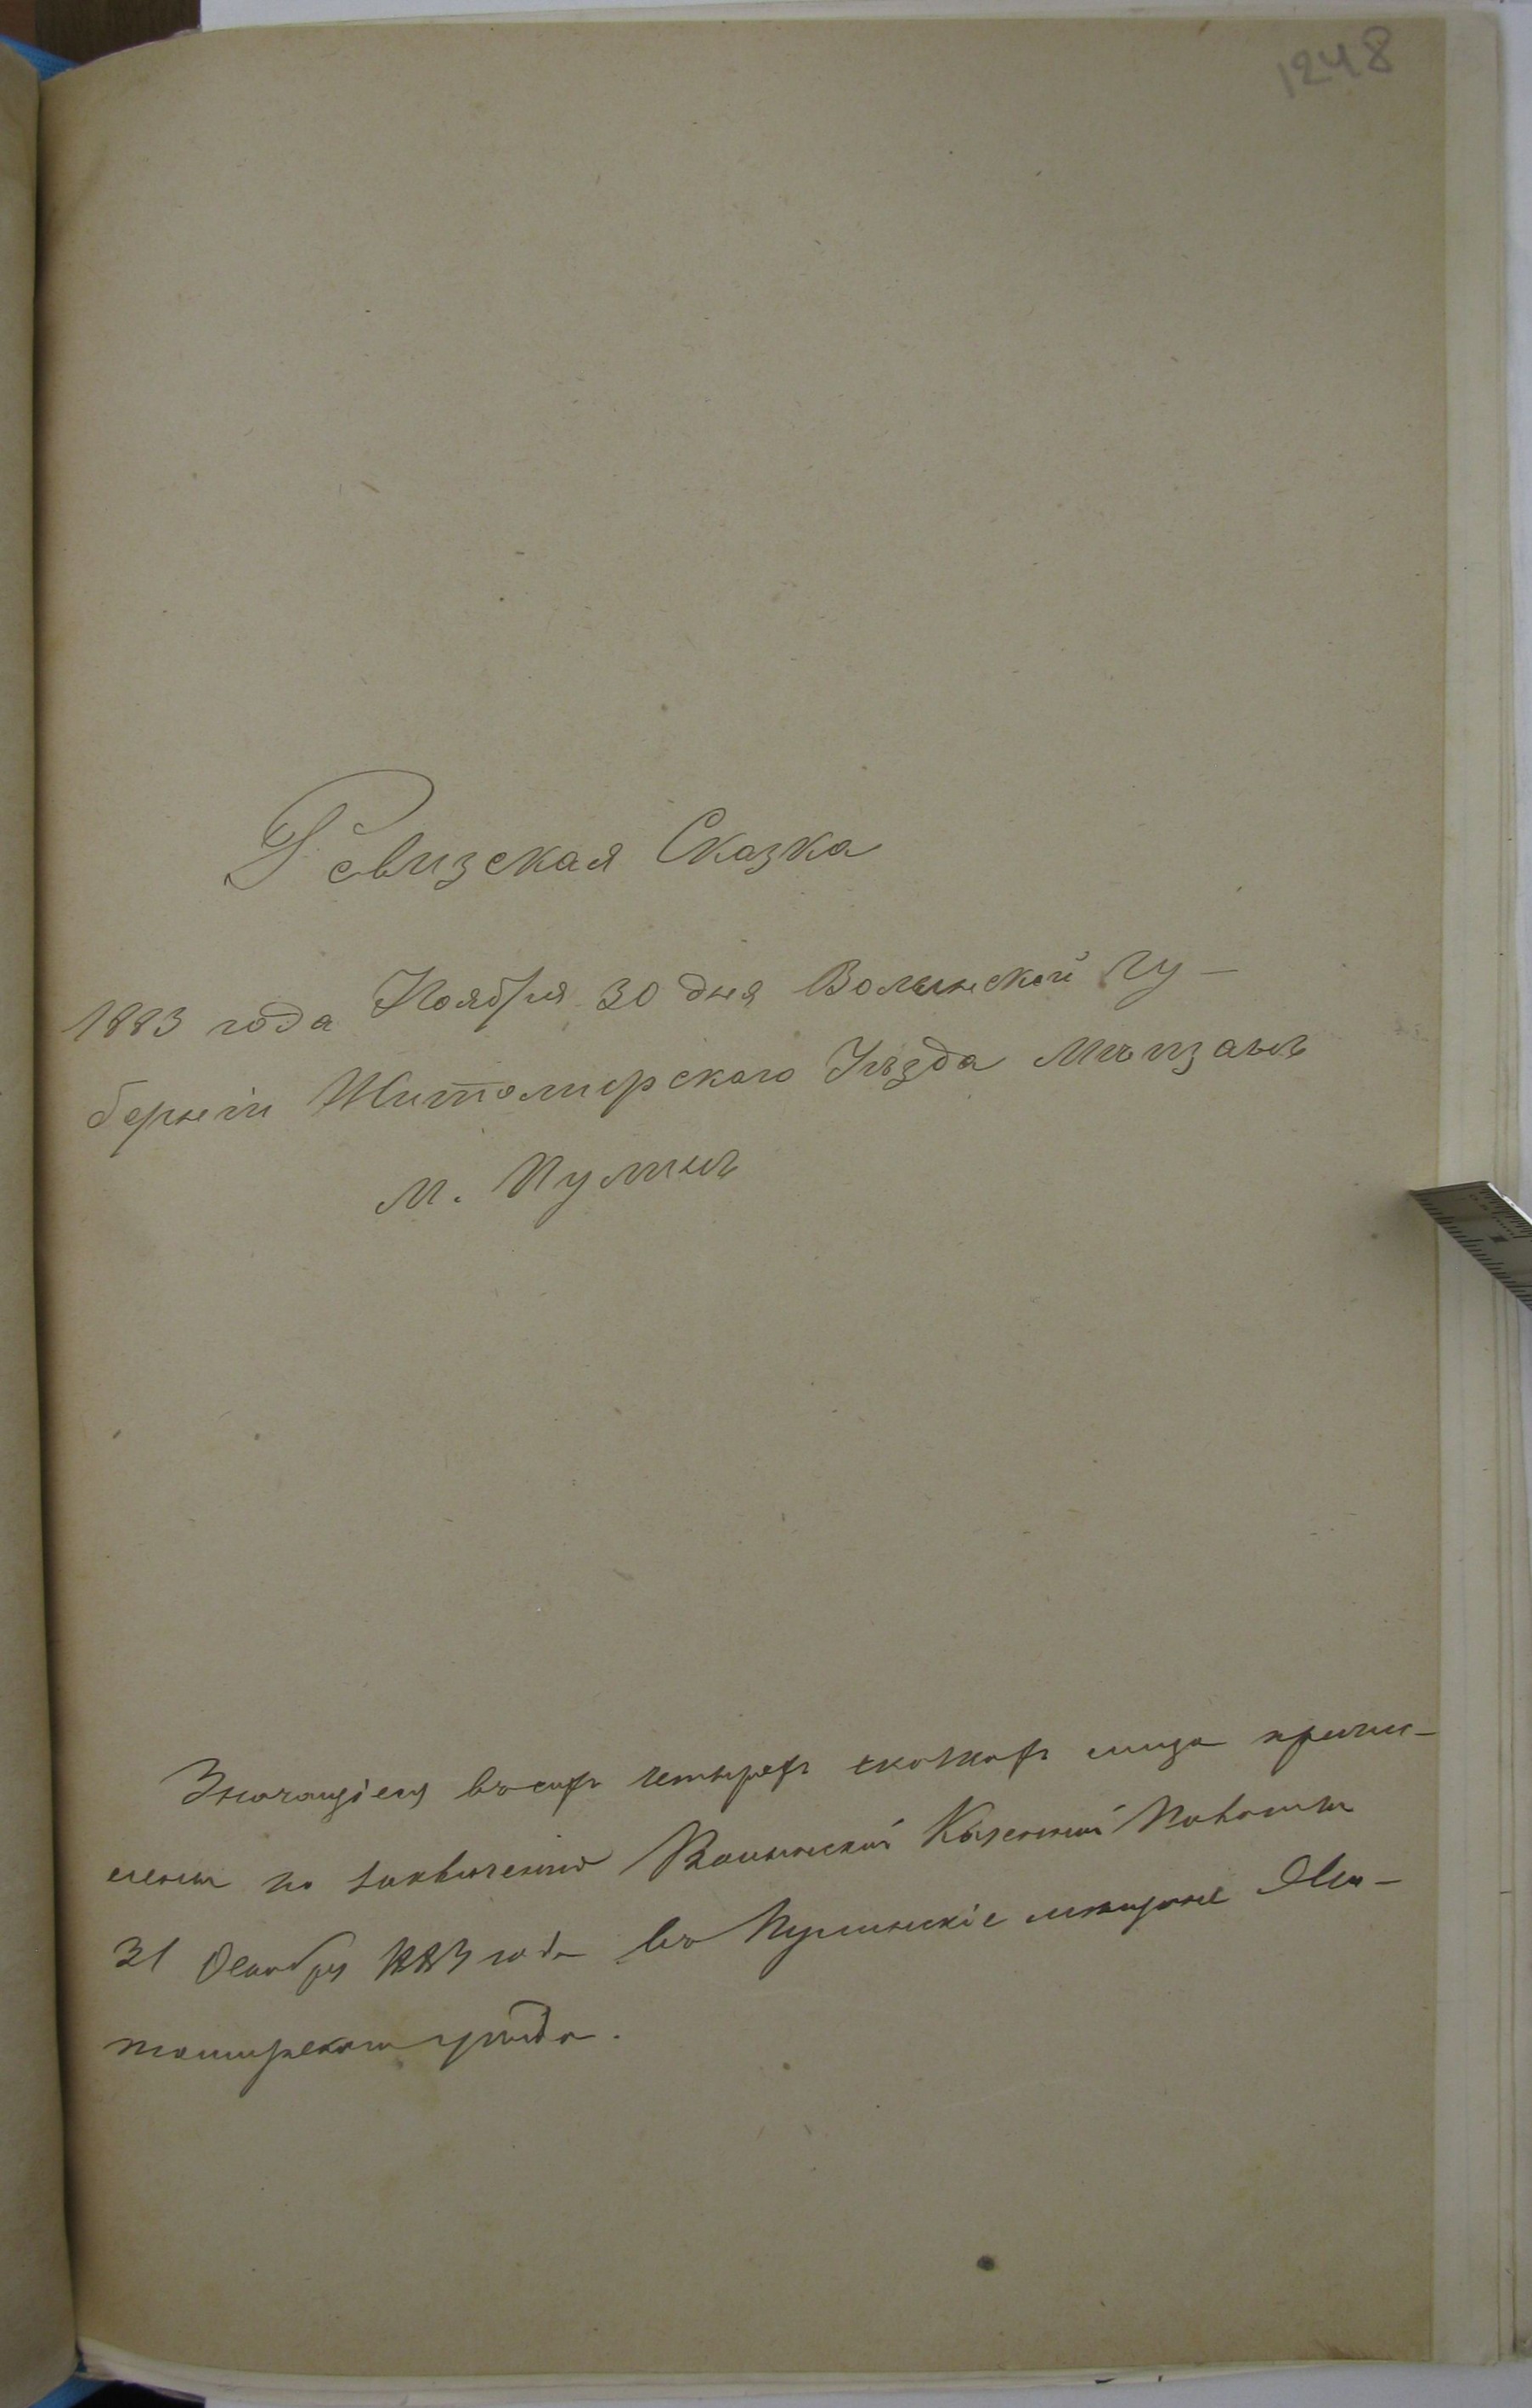 1248
Ревизская Сказка
1883 года Ноября 30 дня Волынской Гу-
берніи Житомирскаго Уѣзда Мѣщанъ
м. Пулинъ
Значащіеся въ сихъ четырехъ сказкахъ лица причи-
слены по заключенію Волынской Казенной Палаты
31 Октября 1883 года въ Пулинскіе мѣщане Жи-
томирскаго уѣзда.